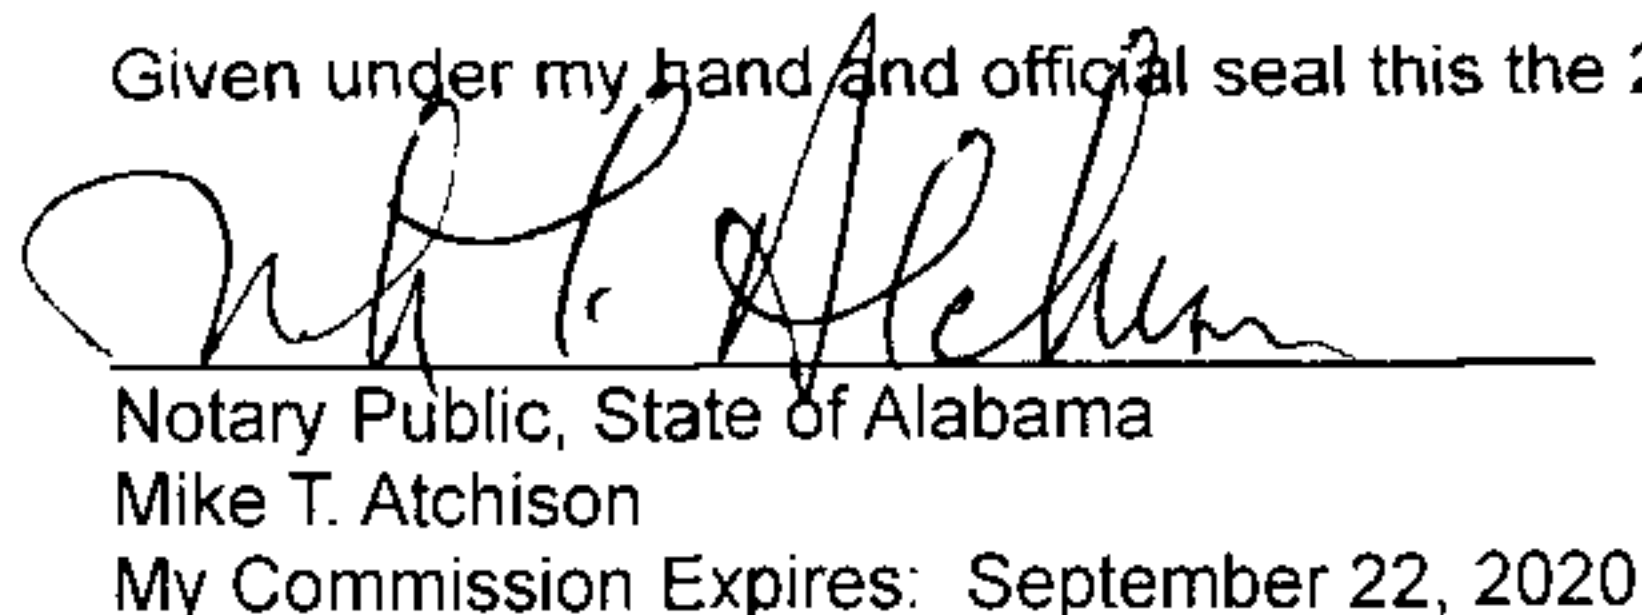 Given under my hand and official seal this the 2
Mike T. Atchison
Notary Public, State of Alabama
Mike T. Atchison
My Commission Expires: September 22, 2020